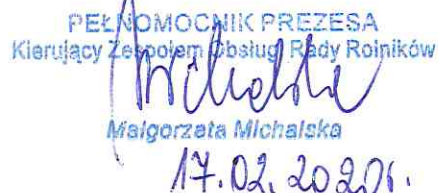 PEŁNOMOCNIK PREZESA
Kierujący Zespołem Obsługi Rady Rolników
Małgorzata Michalska
17.02.2020r.